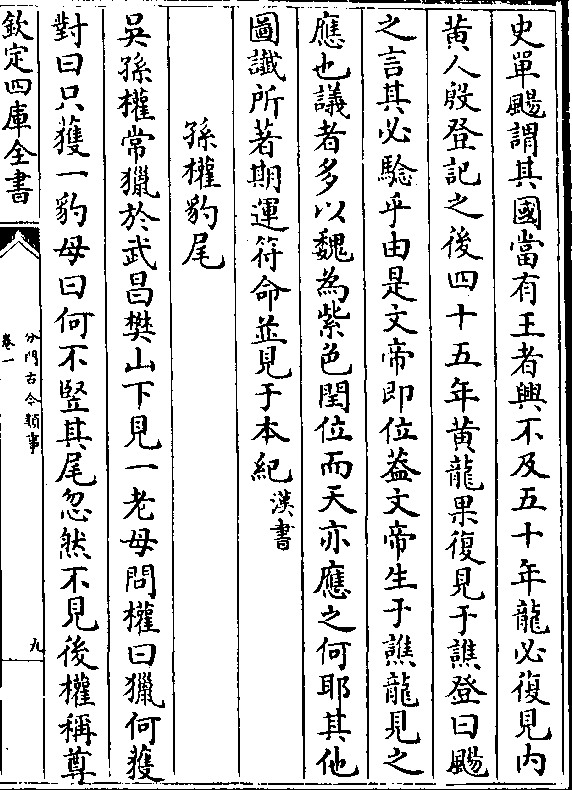 史單颺謂其國當有王者興不及五十年龍必復見内
黄人殷登記之後四十五年黄龍果復見于譙登曰颺
之言其必驗乎由是文帝即位葢文帝生于譙龍見之
應也議者多以魏為紫色閏位而天亦應之何耶其他
圖讖所著期運符命並見于本紀漢書
孫權豹尾
吳孫權常獵於武昌樊山下見一老母問權曰獵何獲
對曰只獲一豹母曰何不竪其尾忽然不見後權稱尊
欽定四庫全書
分門古今類事
卷一
九